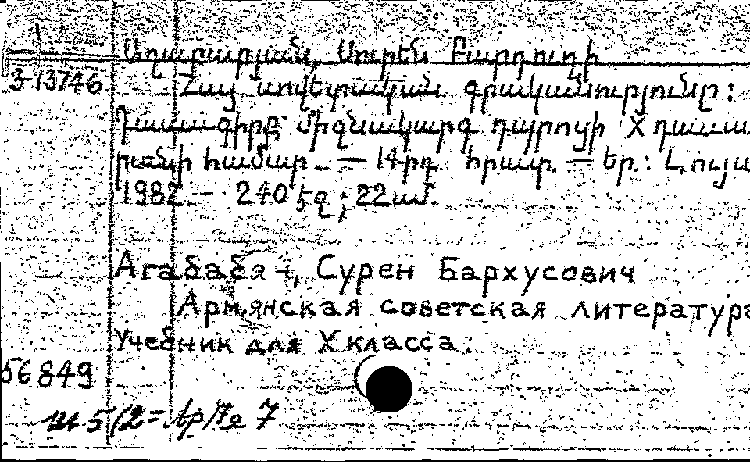 Աղաբաբյան, Սուրեն Բարդուղի
3-13746 Հայ սովետական գրականությունը:
Դասագիրք միջնակարգ դպրոցի X դասա
րանի համար. — 14րդ հրատ. — Եր.: Լույս
1982. — 240 էջ; 22սմ.
Агабабян, Сурен Бархусович
Армянская советская литература
Учебник для X класса.
56849